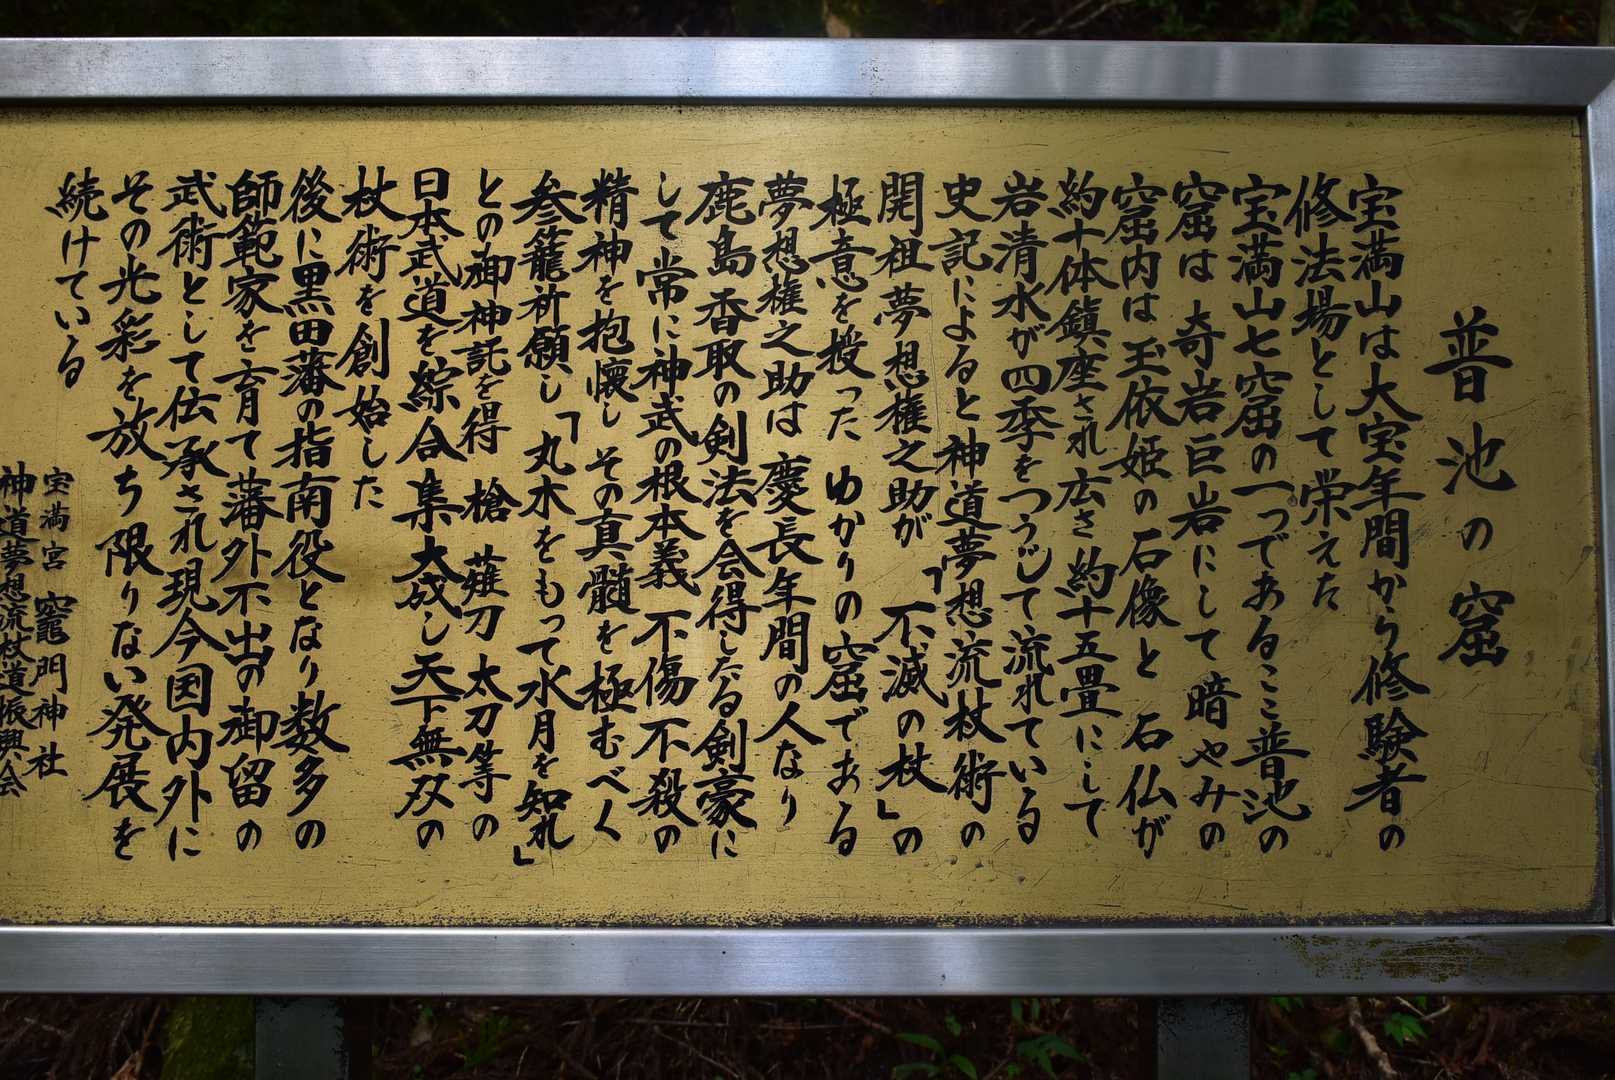 普池の窟
宝満山は大宝年間から修験者の
修法場として栄えた
宝満山七窟の一つであるここ普池の
窟は奇岩巨岩にして暗やみの
窟内は玉依姫の石像と石仏が
約十体鎮座され広さ約十五畳にして
岩清水が四季をつうじて流れている
史記によると神道夢想流杖術の
開祖夢想権之助が「不滅の杖」の
極意を授った ゆかりの窟である
夢想権之助は 慶長年間の人なり
鹿島 香取の剣法を会得したる剣豪に
して常に神武の根本義 不傷不殺の
精神を抱懐し その真髄を極むべく
参籠祈願し「丸木をもって水月を知れ」
との御神託を得 槍 薙刀 太刀等の
日本武道を綜合集大成し天下無双の
杖術を創始した
後に黒田藩の指南役となり数多の
師範家を育て藩外不出の御留の
武術として伝承され現今国内外に
その光彩を放ち限りない発展を
続けている
宝満宮 竈門神社
神道夢想流杖道振興会